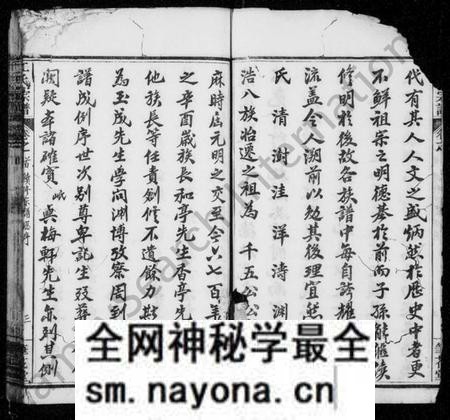 代有其人人文之盛炳然於歷史中者更
不鮮祖宗之明德基於前而子孫能繼續
修明於後故各族譜中每自誇耀
流蓋令人溯前以勉其後理宜然
氏清澍洼洋濤淵
浩八族怡遷之祖為 千五公公
麻時屆元明之交至今六七百年
之辛酉歲族長和亭先生香亭先
他族長等任責創修不遺餘力勘
為玉成先生學問淵博攷察周到
譜成例序世次別尊卑記生歿葬
闕疑孝諸確實岷與梅軒先生亦列其側
全网神秘学最全
sm.nayona.cn